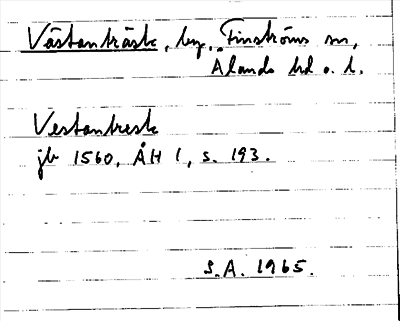 Västanträsk, by, Finströms sn,
Ålands hd o. l.
Vestantresk
jb 1560, ÅH 1, s. 193.
S.A. 1965.